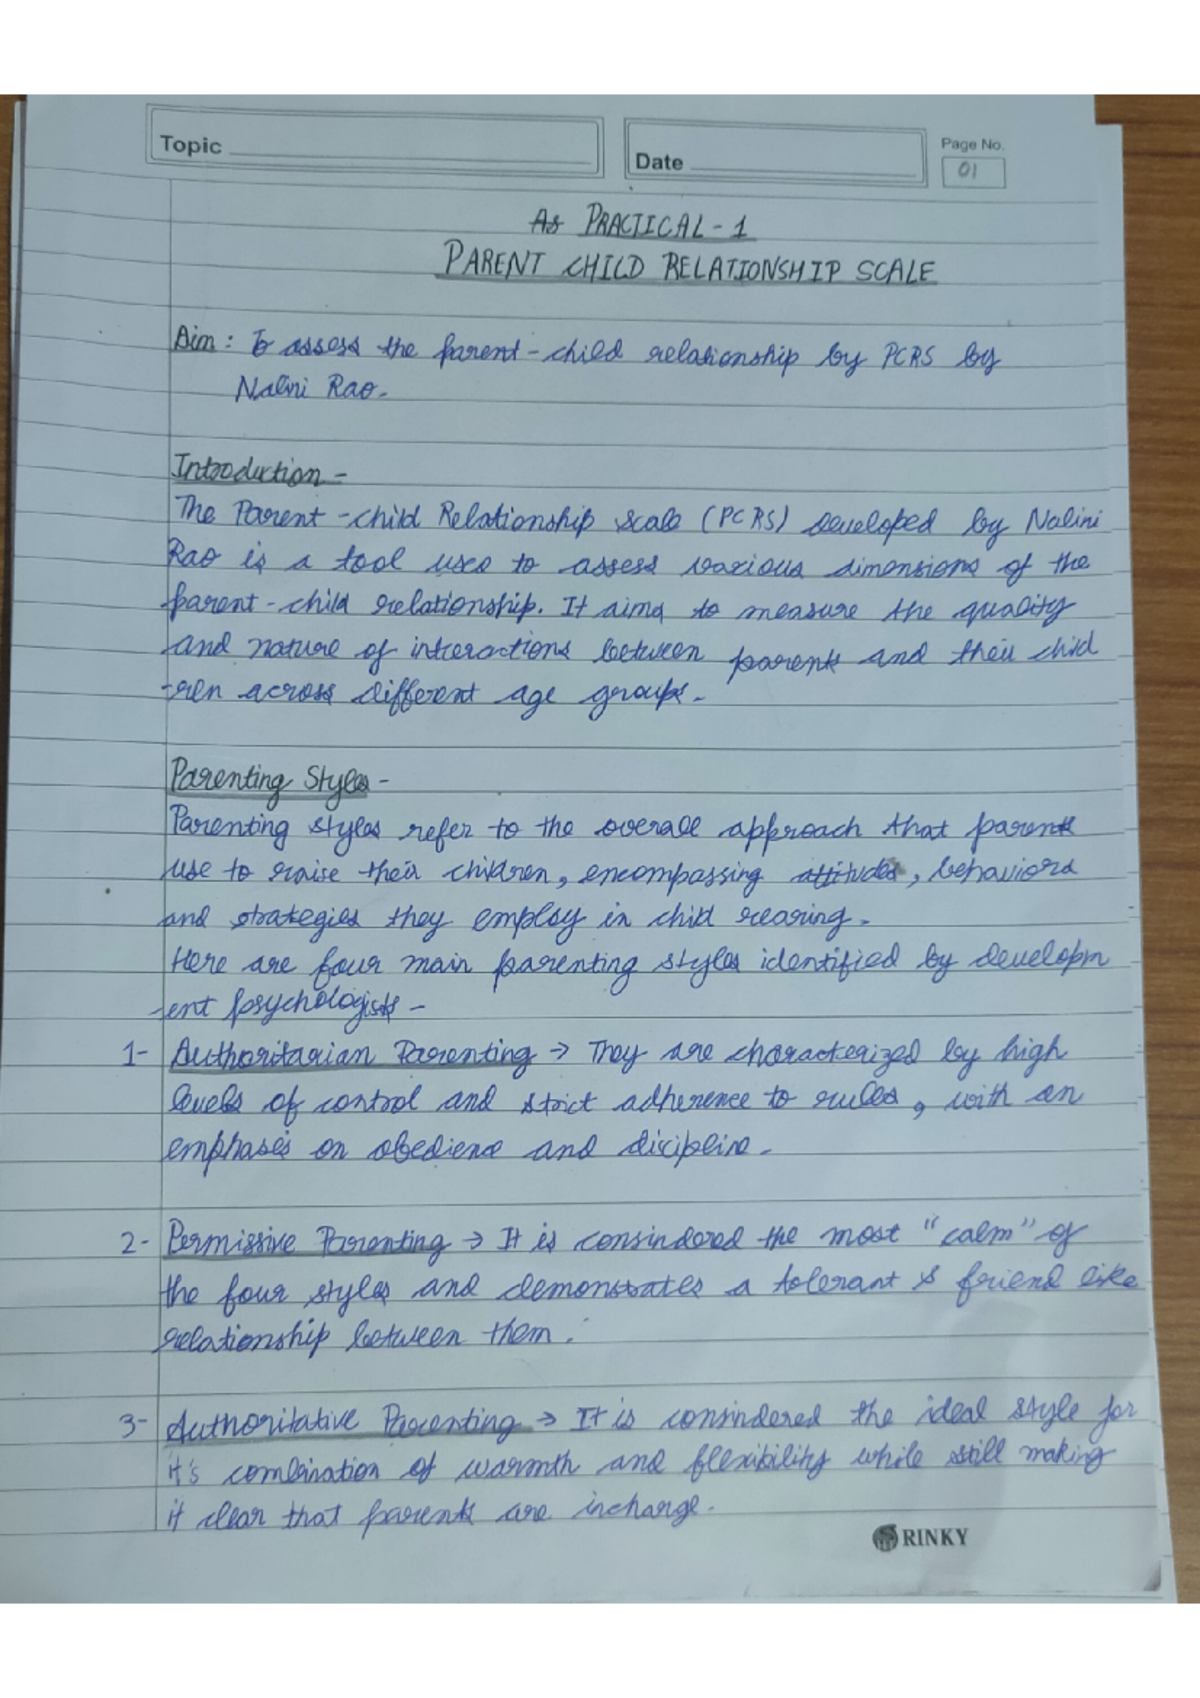 Topic
Date
Page No.
01
As PRACTICAL - 1
PARENT CHILD RELATIONSHIP SCALE
Aim : To assess the parent - child relationship by PCRS by
Nalini Rao.
Introduction -
The Parent - child Relationship scale (PCRS) developed by Nalini
Rao is a tool used to assess various dimensions of the
parent - child relationship. It aims to measure the quality
and nature of interactions between parents and their child
-ren across different age groups.
Parenting Styles -
Parenting styles refer to the overall approach that parents
use to raise their children, encompassing attitudes, behaviors
and strategies they employ in child rearing.
Here are four main parenting styles identified by developm
-ent psychologists -
1- Authoritarian Parenting → They are characterized by high
levels of control and strict adherence to rules, with an
emphasis on obedience and discipline.
2- Permissive Parenting → It is consindered the most "calm" of
the four styles and demonstrates a tolerant & friend like
relationship between them.
3- Authoritative Parenting → It is consindered the ideal style for
it's combination of warmth and flexibility while still making
it clear that parents are incharge.
RINKY